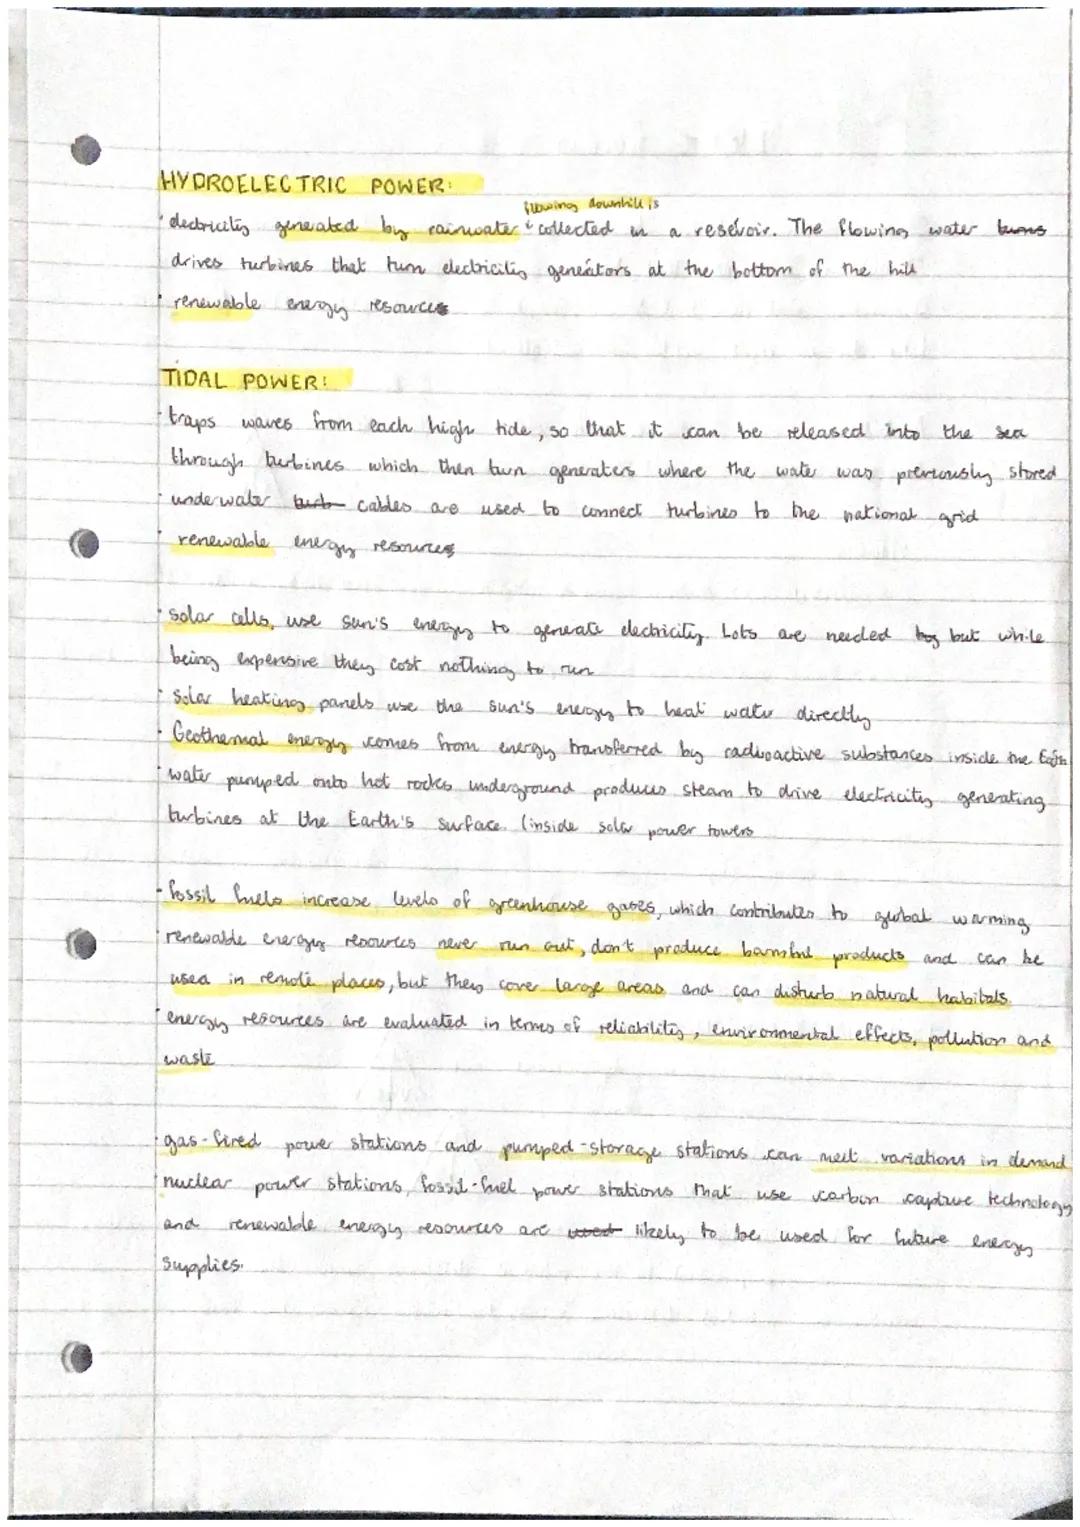 HYDROELECTRIC POWER:
flowing downhill is
electricity generated by rainwater collected in a resevoir. The flowing water turns
drives turbines that turn electricity generators at the bottom of the hill
renewable energy resources
TIDAL POWER:
traps waves from each high tide, so that it can be released into the sea
through turbines which then turn generaters where the water was previously stored
underwater turb cables are used to connect turbines to the national grid
renewable energy resources
solar cells, use sun's energy to generate electricity. Lots are needed but while
being expensive they cost nothing to run
Solar heating panels use the sun's energy to heat water directly
Geothermal energy comes from energy transferred by radioactive substances inside the Earth
water pumped onto hot rocks underground produces steam to drive electricity generating
turbines at the Earth's surface. (inside solar power towers
fossil fuels increase levels of greenhouse gases, which contributes to global warming
renewable energy resources never run out, don't produce harmful products and can be
used in remote places, but they cover large areas and can disturb natural habitats.
energy resources are evaluated in terms of reliability, environmental effects, pollution and
waste
gas-fired power stations and pumped-storage stations can meet variations in demand
nuclear power stations, fossil-fuel power stations that use carbon capture technology
and renewable energy resources are used likely to be used for future energy
supplies.